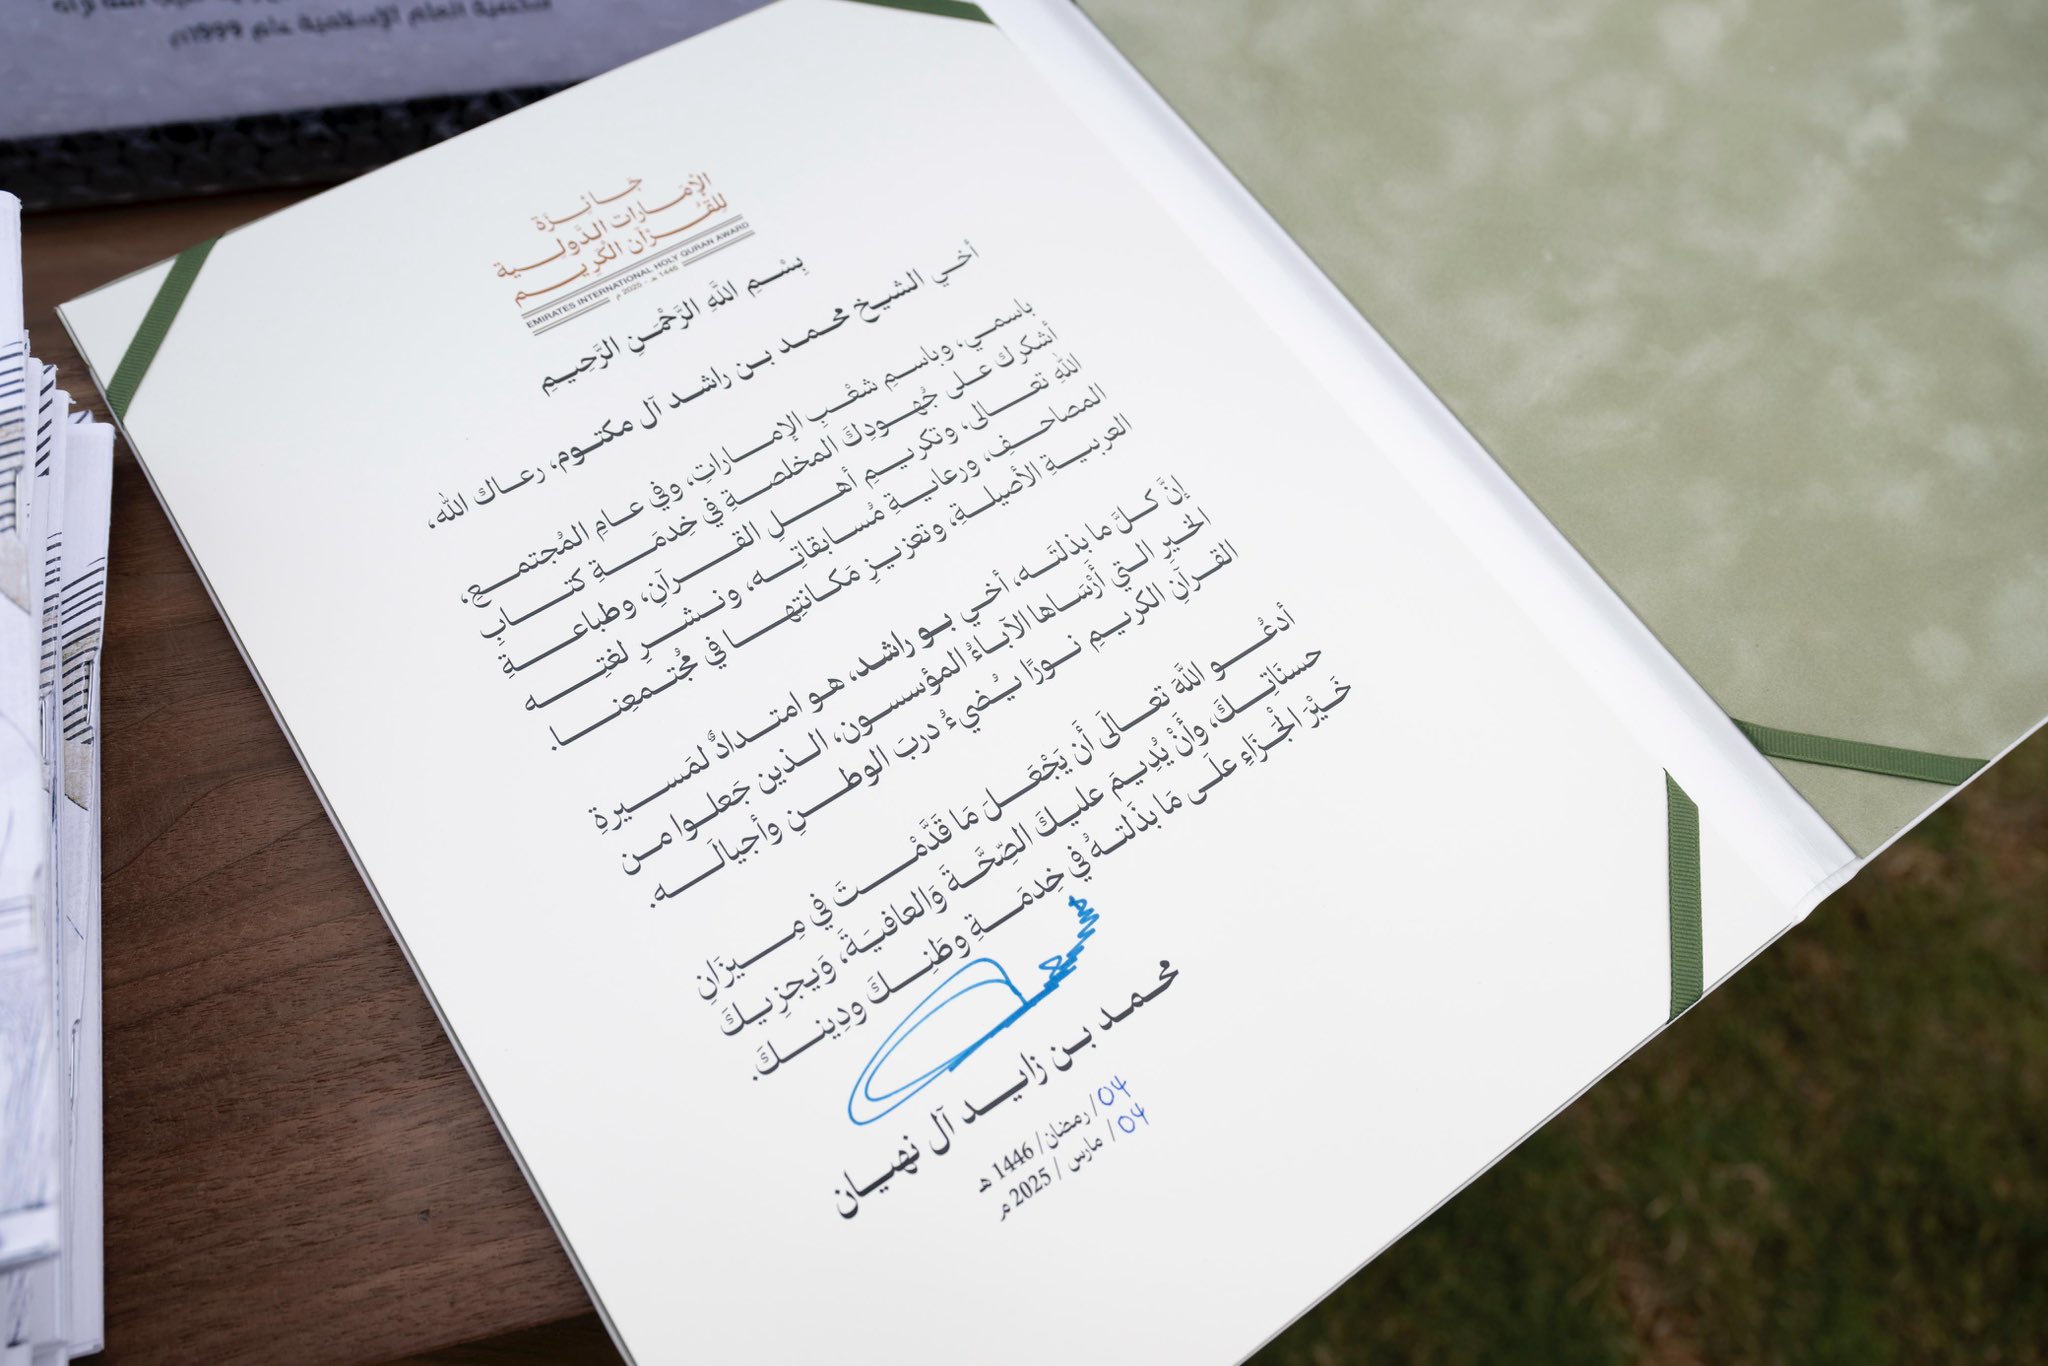 شخصية العام الإسلامية عام 1999م
جائزة
الإمارات الدولية
للقرآن الكريم
EMIRATES INTERNATIONAL HOLY QURAN AWARD
1446 هـ - 2025 م
بِسْمِ اللَّهِ الرَّحْمَنِ الرَّحِيمِ
أخي الشيخ محمد بن راشد آل مكتوم، رعاك الله،
باسمي، وباسمِ شعْبِ الإماراتِ، وفي عامِ المُجتمعِ،
أشكرك على جُهودِكَ المخلصةِ في خِدمَةِ كتابِ
اللهِ تعالى، وتكريمِ أهلِ القرآنِ، وطباعةِ
المصاحفِ، ورعايةِ مُسابقاتِه، ونشرِ لغتِه
العربيةِ الأصيلةِ، وتعزيزِ مَكانتِها في مُجتمعِنا.
إنَّ كلَّ ما بذلتَه، أخي بو راشد، هو امتدادٌ لمَسيرةِ
الخيرِ التي أَرْسَاها الآباءُ المؤسسون، الذين جَعلوا من
القرآنِ الكريمِ نورًا يُضيءُ دربَ الوطنِ وأجيالَه.
أدعُو اللَّهَ تعالَى أَن يَجْعَلَ مَا قَدَّمْتَ فِي مِيزَانِ
حسنَاتِكَ، وَأَنْ يُدِيمَ عليكَ الصِّحَّةَ وَالعافيَةَ، وَيجزِيكَ
خَيْرَ الْجَزَاءِ علَى مَا بذَلتهُ فِي خِدمَةِ وطَنِكَ ودِينكَ.
محمد بن زايد آل نهيان
04/ رمضان/ 1446 هـ
04 / مارس / 2025 م